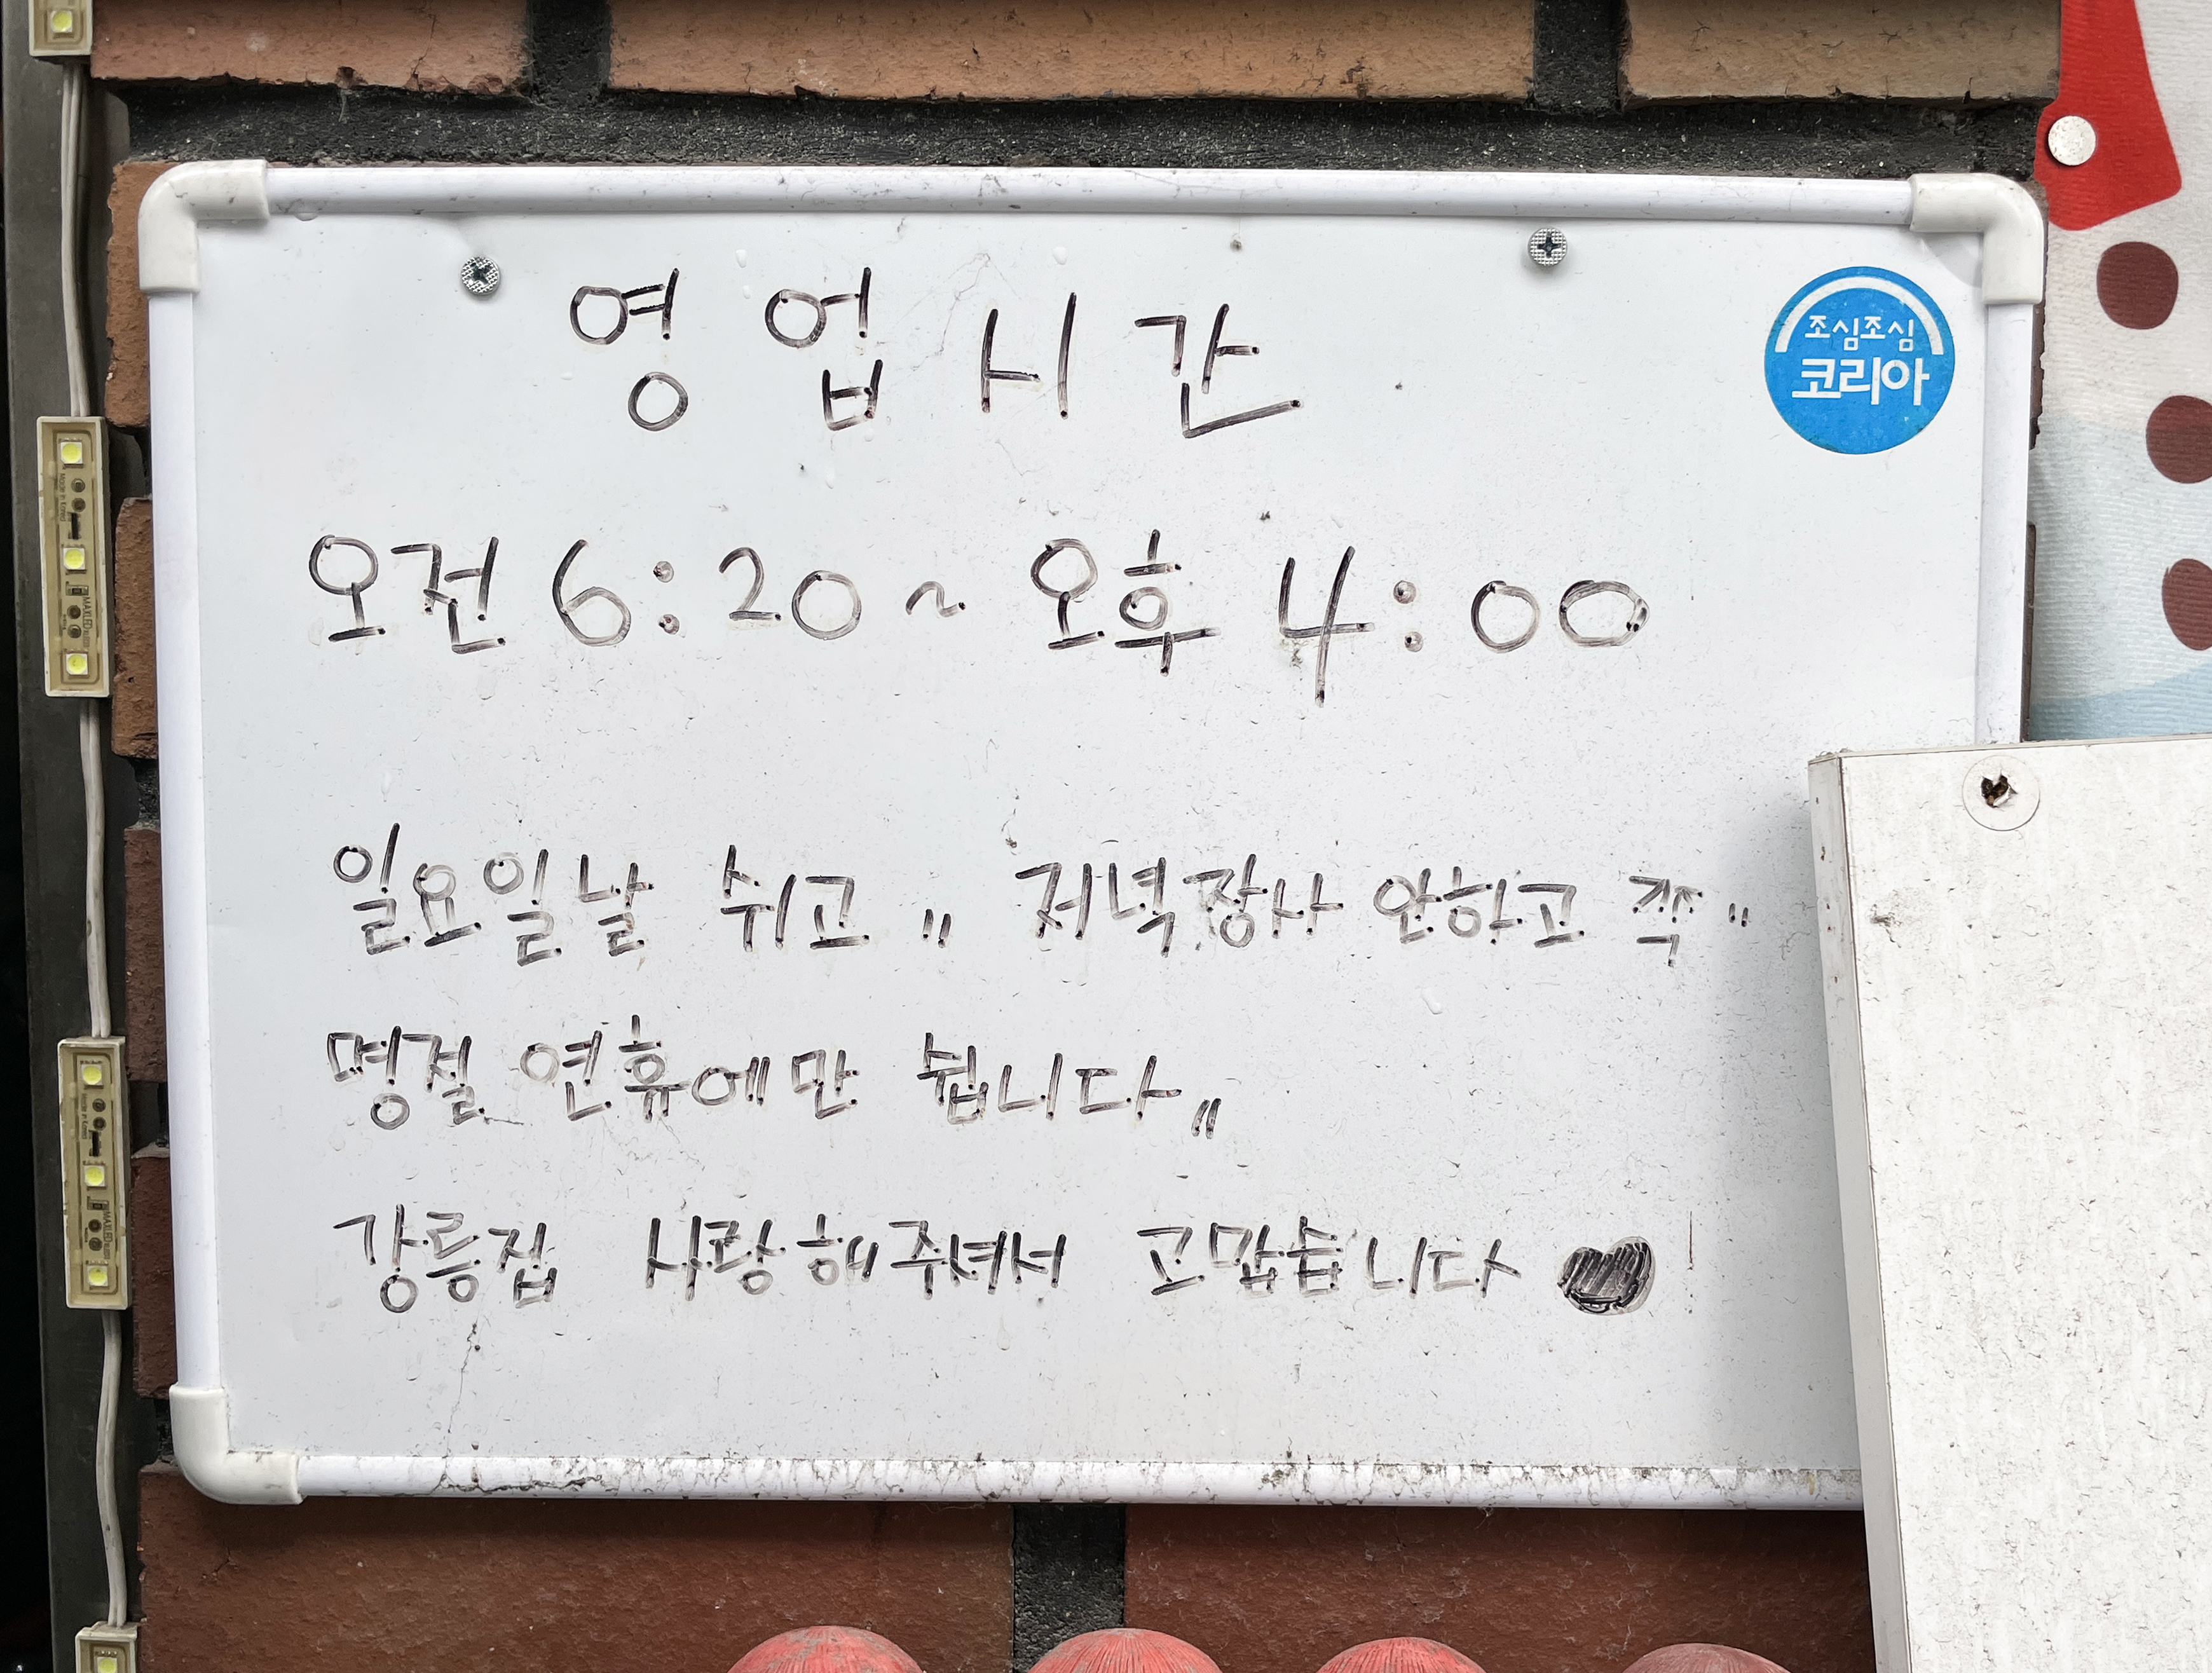 영업시간
조심조심
코리아
오전 6:20 ~ 오후 4:00
일요일날 쉬고 〃 저녁장사 안하고 쭉 〃
명절 연휴에만 쉽니다 〃
강릉집 사랑해주셔서 고맙습니다